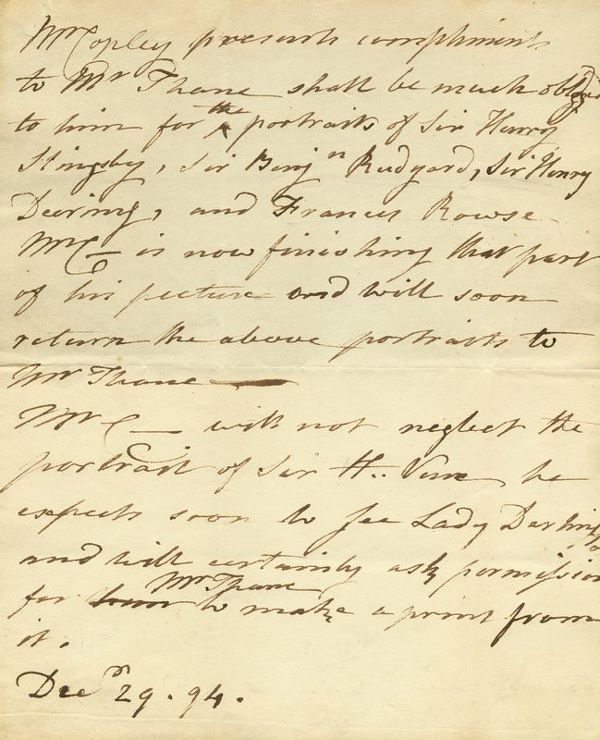 Mr Copley presents compliments
to Mr Thane shall be much oblgd
to him for the ^ portraits of Sir Henry
Slingsby, Sir Benjn Rudyard, Sir Henry
Deering, and Francis Rowse
Mr C— is now finishing that part
of his picture and will soon
return the above portraits to
Mr Thane —
Mr C— will not neglect the
portrait of Sir H.. Vane he
expects soon to see Lady Darlington
and will certainly ask permission
for Mr. Thane to make a print from
it.
Decr 29. 94.